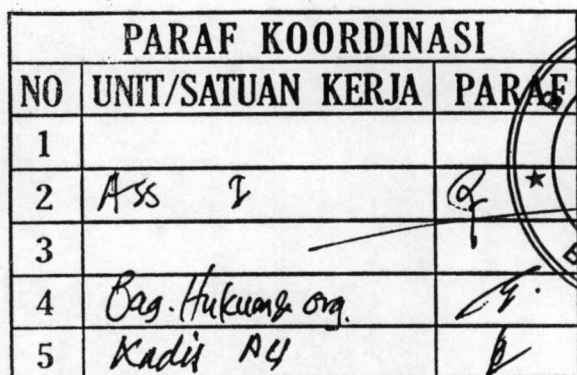 PARAF KOORDINASI
NO UNIT/SATUAN KERJA PARAF
1
2 Ass I
3
4 Bag. Hukum & org.
5 Kadis PU